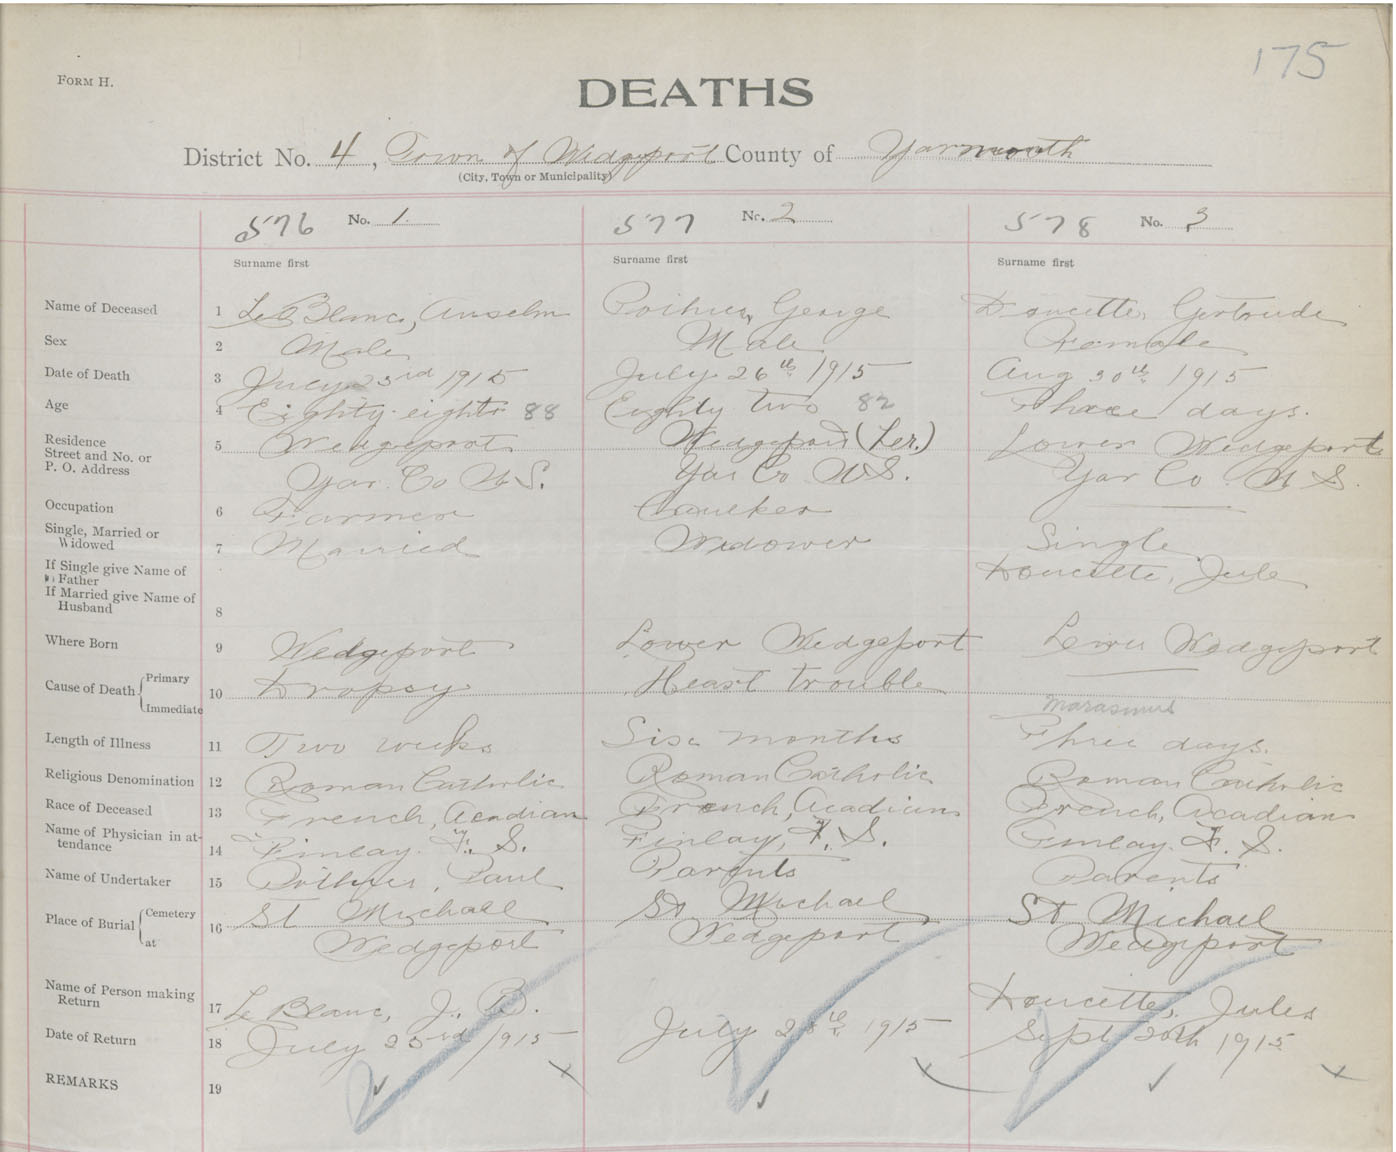 175
FORM H.
DEATHS
District No. 4, Town of Wedgeport County of Yarmouth
(City, Town or Municipality)
576 No. 1 577 No. 2 578 No. 3
Surname first Surname first Surname first
Name of Deceased 1 Le Blanc, Anselm Pothier, George Doucette, Gertrude
Sex 2 Male Male Female
Date of Death 3 July 23rd 1915 July 26th 1915 Aug 30th 1915
Age 4 Eighty-eight 88 Eighty two 82 Three days.
Residence 5 Wedgeport Wedgeport (Ler.) Lower Wedgeport
Street and No. or
P. O. Address Yar. Co N S. Yar Co N S. Yar Co. N S.
Occupation 6 Farmer Caulker
Single, Married or
Widowed 7 Married Widower Single
If Single give Name of
Father Doucette, Jule
If Married give Name of
Husband 8
Where Born 9 Wedgeport Lower Wedgeport Lower Wedgeport
Cause of Death { Primary
Immediate 10 Dropsy Heart trouble Marasmus
Length of Illness 11 Two weeks Six months Three days.
Religious Denomination 12 Roman Catholic Roman Catholic Roman Catholic
Race of Deceased 13 French, Acadian French, Acadian French, Acadian
Name of Physician in at-
tendance 14 Finlay. F. S. Finlay, F. S. Finlay. F. S.
Name of Undertaker 15 Pothier, Paul Parents Parents
Place of Burial { Cemetery
at 16 St Michael St Michael St Michael
Wedgeport Wedgeport Wedgeport
Name of Person making
Return 17 Le Blanc, J. B. Doucette, Jules
Date of Return 18 July 25rd 1915 July 28th 1915 Sept 20th 1915
REMARKS 19